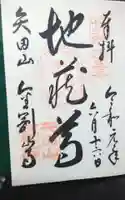 奉拝
令和元年
六月十六日
地蔵尊
矢田山
金剛山寺